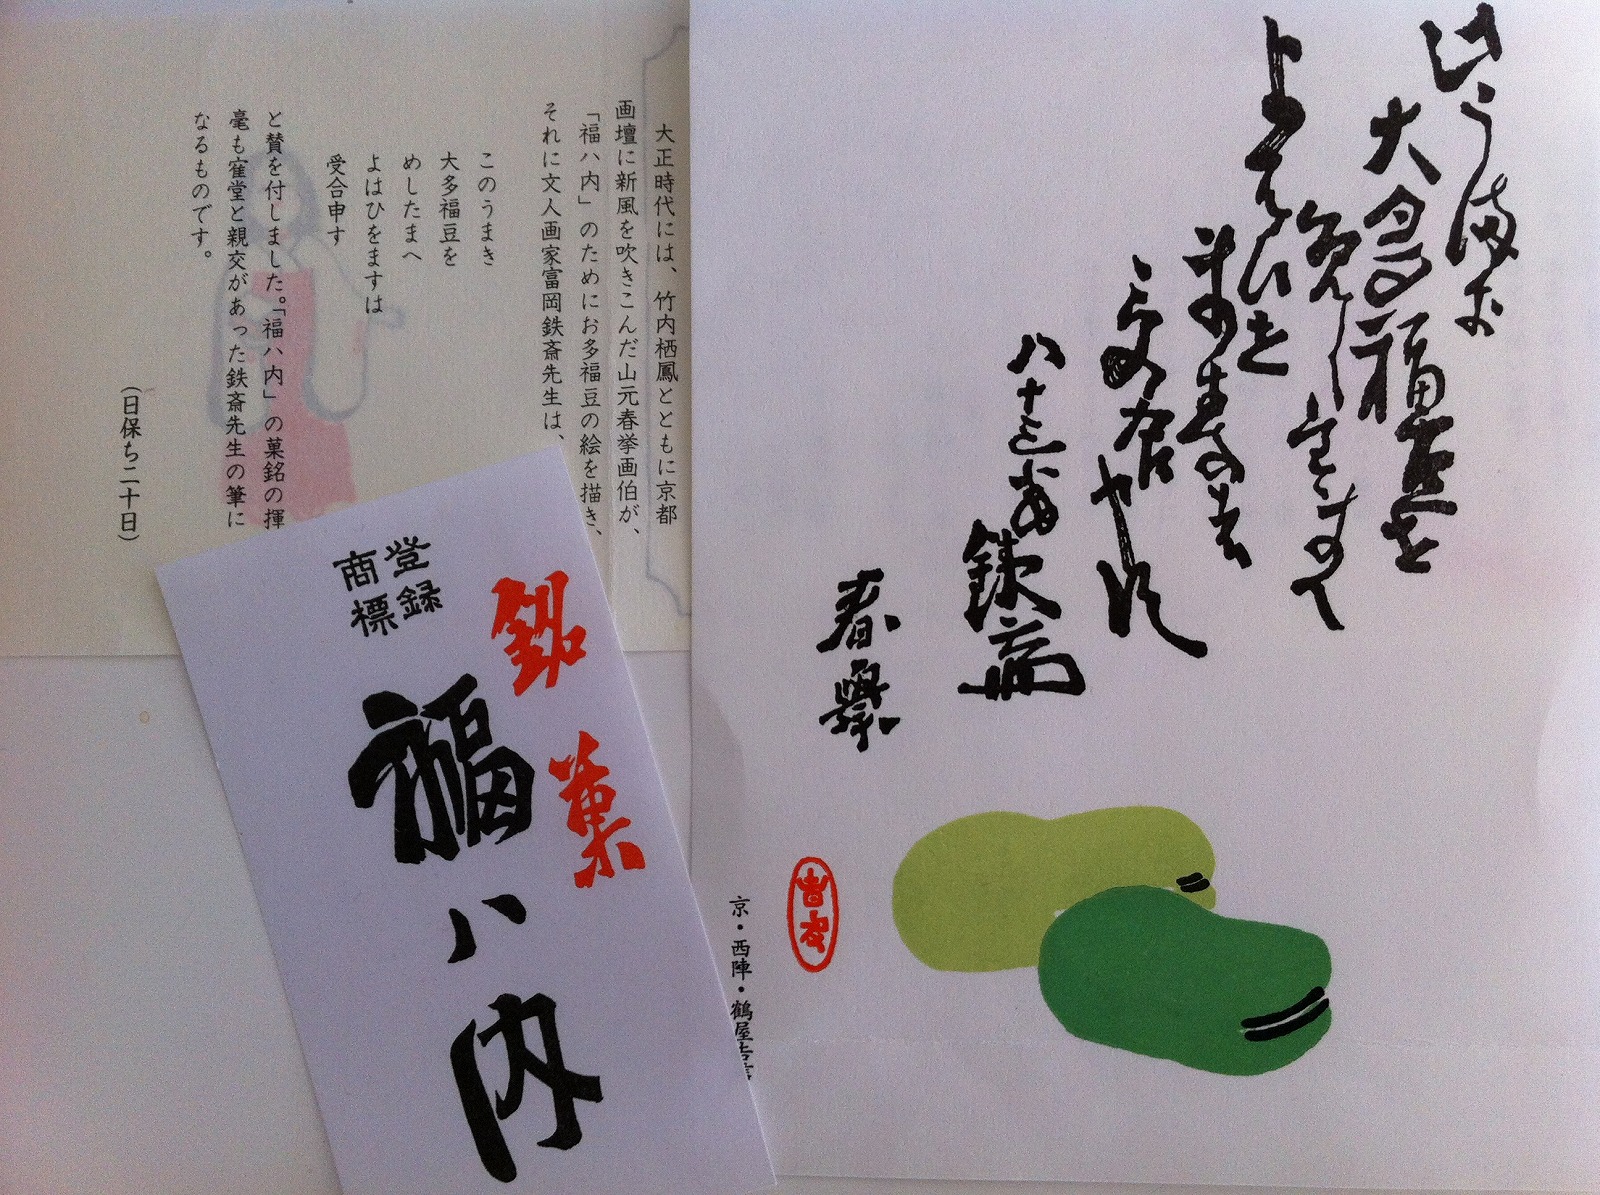 大正時代には、竹内栖鳳とともに京都
画壇に新風を吹きこんだ山元春挙画伯が、
「福ハ内」のためにお多福豆の絵を描き、
それに文人画家富岡鉄斎先生は、
このうまき
大多福豆を
めしたまへ
よはひをますは
受合申す
と賛を付しました。「福ハ内」の菓銘の揮
毫も寉堂と親交があった鉄斎先生の筆に
なるものです。
(日保ち二十日)
銘菓
登録
商標
福ハ内
大多福豆を
受合申須
八十三歳
鉄斎
春挙
京・西陣・鶴屋吉信